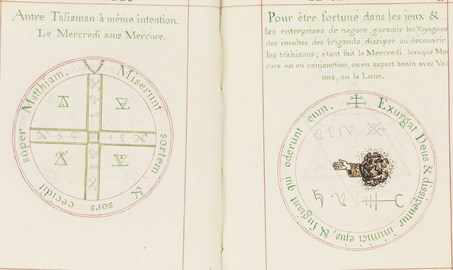 Autre Talisman à même intention.
Le Mercredi sous Mercure.
Miserunt sortem. & sors cecidit super Matthiam.
Pour être fortuné dans les jeux &
les entreprises de négoce; garantir les Voyageurs
des insultes des brigands, dissiper ou découvrir
les trahisons; étant fait le Mercredi, lorsque Mer
cure est en conjonction, ou en aspect benin avec Ve
nus, ou la Lune.
Exurgat Deus & dissipentur inimici ejus, & fugiant qui oderunt eum.